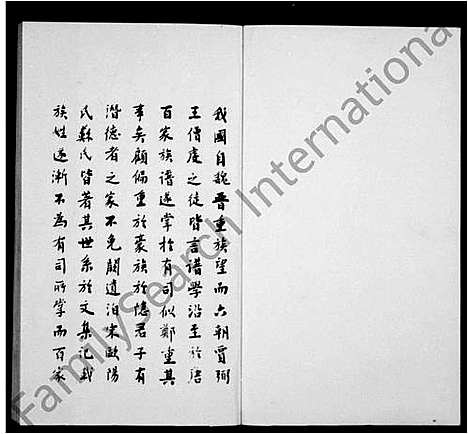 我國自魏晉重族望而六朝賈弼
王僧虔之徒皆言譜學沿至於唐
百家族譜遂掌於有司似鄭重其
事矣顧偏重於豪族於隱君子有
潛德者之家不免闕遺洎宋歐陽
氏蘇氏皆著其世系於文集記載
族姓遂漸不為有司所掌而百家
FamilySearch International